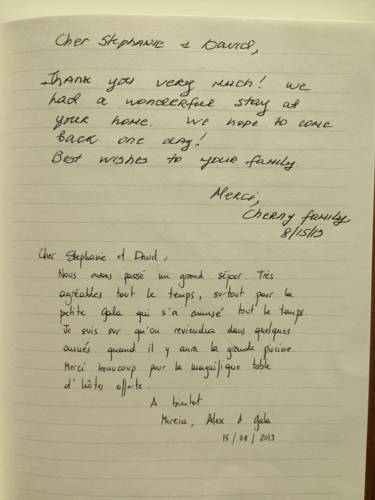 Cher Stephanie & David,
Thank you very much! We
had a wonderful stay at
your home. We hope to come
back one day!
Best wishes to your family.
Merci,
Cherny family
8/15/13
Cher Stephanie et David,
Nous avons passé un grand séjour. Très
agréables tout le temps, surtout pour la
petite Gala qui s'a amusé tout le temps.
Je suis sur qu'on reviendra dans quelques
annés quand il y aura la grande piscine.
Merci beaucoup pour la magnifique table
d'hôtes offerte.
A bientot
Mireia, Alex & Gala
15/08/2013